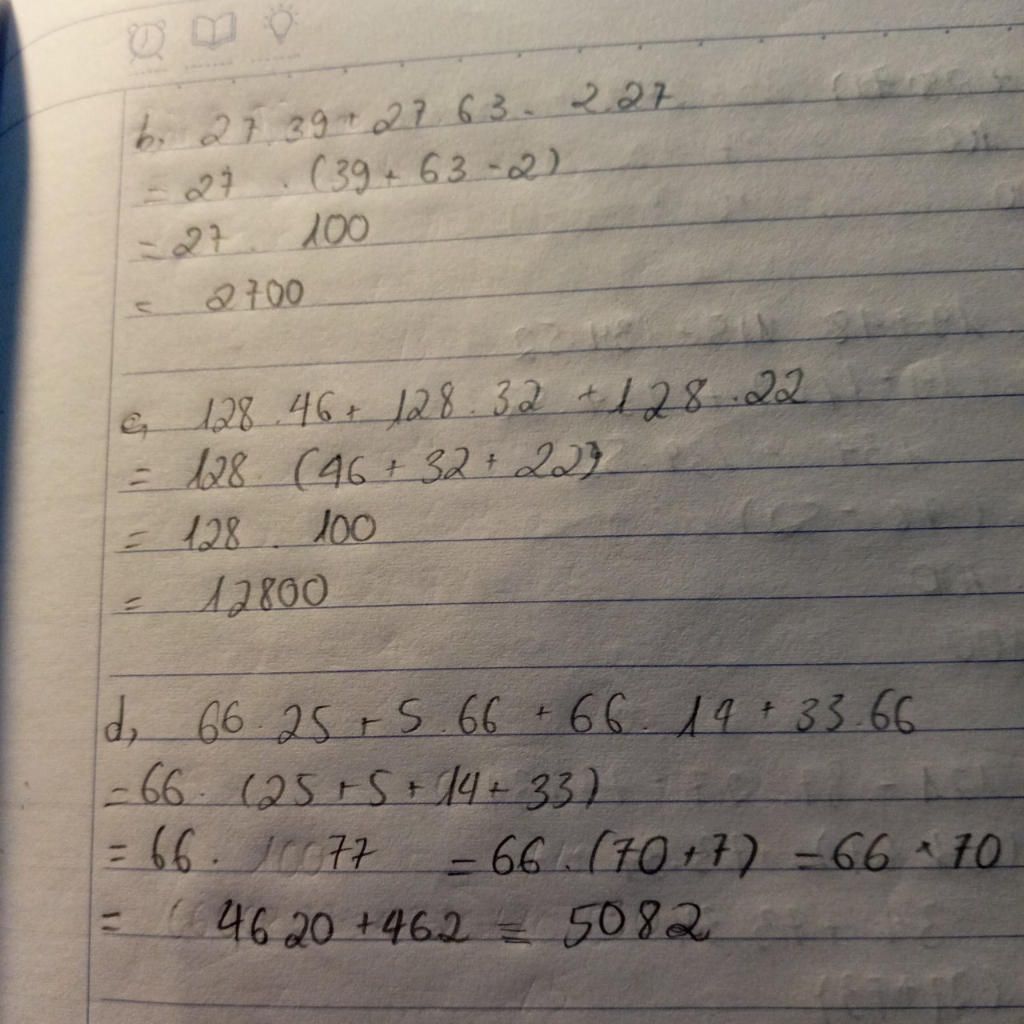 b, 27.39 + 27.63 - 2.27
= 27 . (39 + 63 - 2)
= 27 . 100
= 2700
c, 128.46 + 128.32 + 128.22
= 128 (46 + 32 + 22)
= 128 . 100
= 12800
d, 66.25 + 5.66 + 66.14 + 33.66
= 66. (25 + 5 + 14 + 33)
= 66. 77 = 66.(70+7) = 66 . 70
= 4620 + 462 = 5082